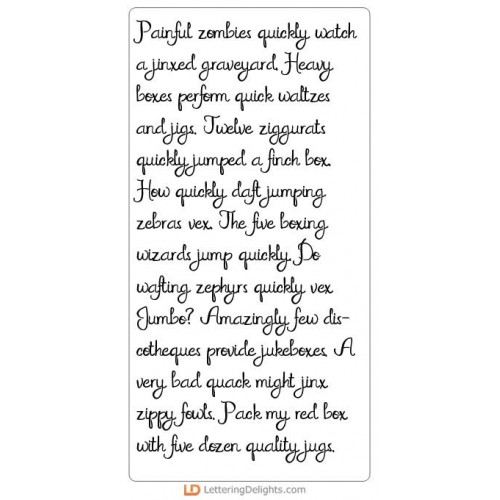 Painful zombies quickly watch
a jinxed graveyard. Heavy
boxes perform quick waltzes
and jigs. Twelve ziggurats
quickly jumped a finch box.
How quickly daft jumping
zebras vex. The five boxing
wizards jump quickly. Do
wafting zephyrs quickly vex
Jumbo? Amazingly few dis-
cotheques provide jukeboxes. A
very bad quack might jinx
zippy fowls. Pack my red box
with five dozen quality jugs.
LD LetteringDelights.com